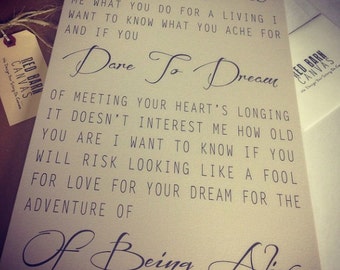 ME WHAT YOU DO FOR A LIVING I
WANT TO KNOW WHAT YOU ACHE FOR
AND IF YOU
Dare To Dream
OF MEETING YOUR HEART'S LONGING
IT DOESN'T INTEREST ME HOW OLD
YOU ARE I WANT TO KNOW IF YOU
WILL RISK LOOKING LIKE A FOOL
FOR LOVE FOR YOUR DREAM FOR THE
ADVENTURE OF
Of Being
RED BARN
CANVAS
RED BARN
CANVAS